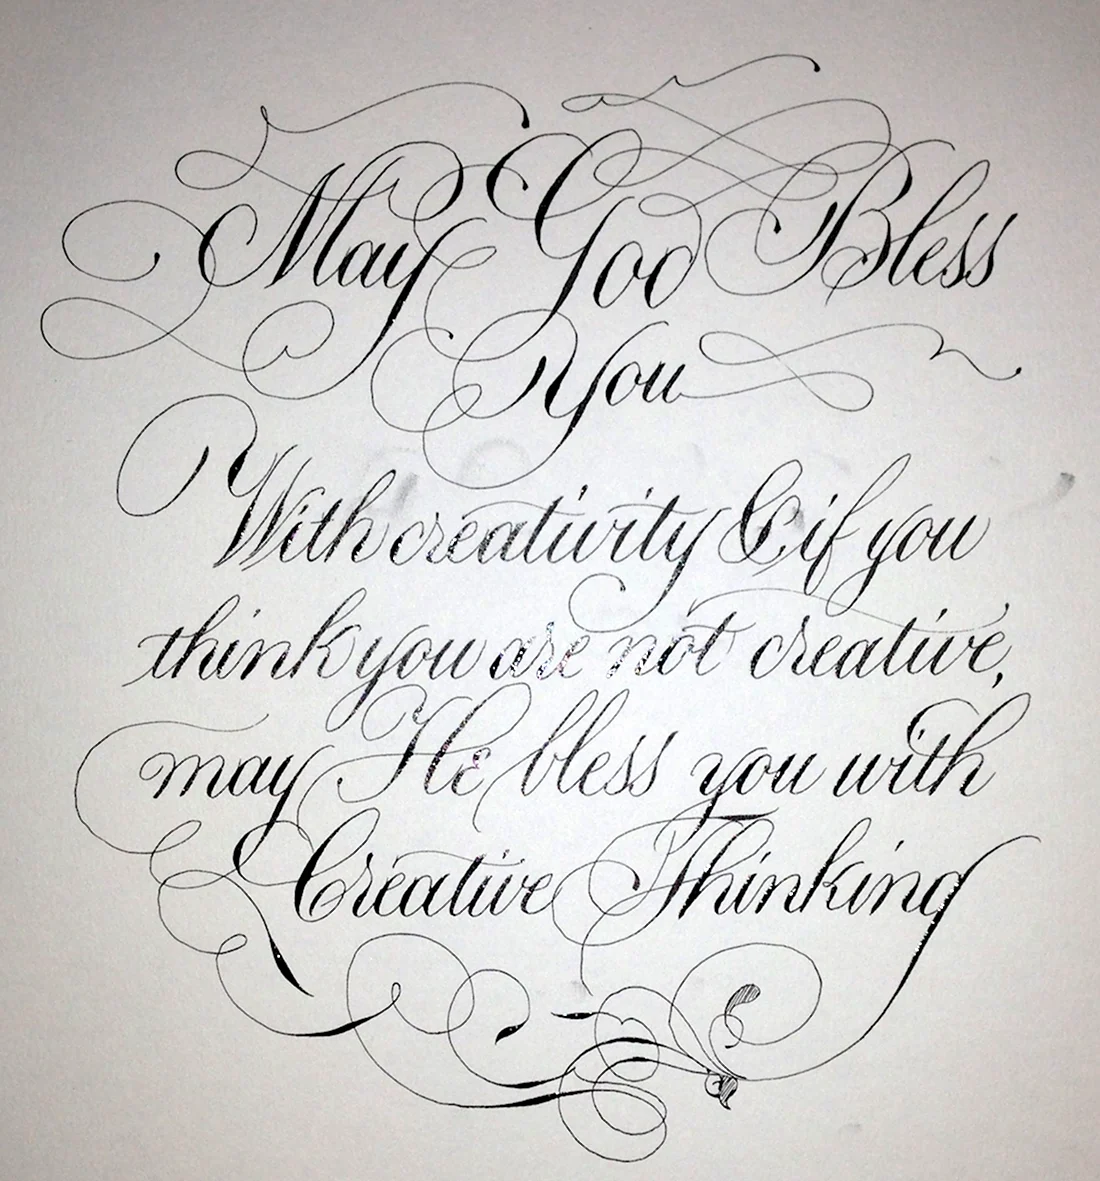 May God Bless
You
With creativity & if you
think you are not creative,
may He bless you with
Creative Thinking